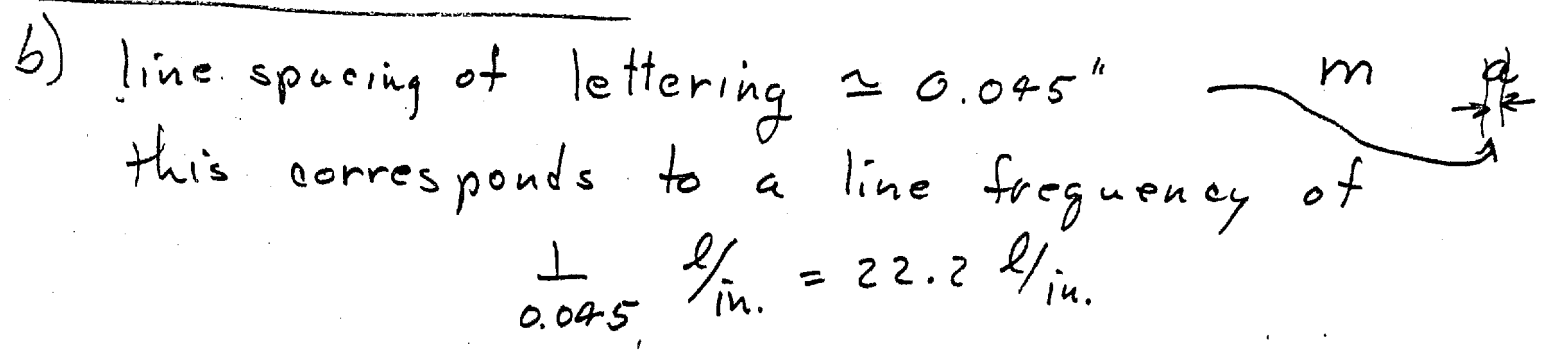 b) line spacing of lettering ≃ 0.045" m d
this corresponds to a line frequency of
1/0.045 l/in. = 22.2 l/in.